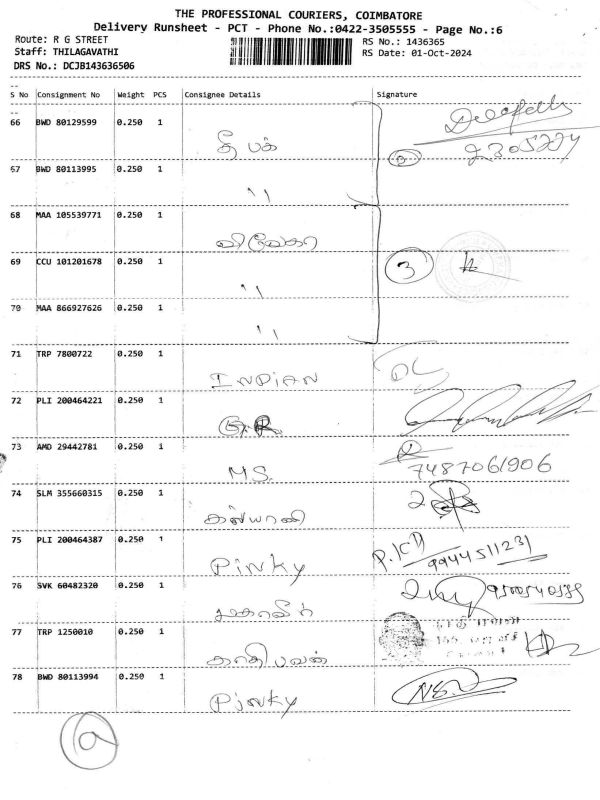 THE PROFESSIONAL COURIERS, COIMBATORE
Delivery Runsheet - PCT - Phone No.:0422-3505555 - Page No.:6
Route: R G STREET
RS No.: 1436365
Staff: THILAGAVATHI
RS Date: 01-Oct-2024
DRS No.: DCJB143636506
S No Consignment No Weight PCS Consignee Details Signature
66 BWD 80129599 0.250 1 தீபக்
67 BWD 80113995 0.250 1 ''
68 MAA 105539771 0.250 1
69 CCU 101201678 0.250 1 '' 3
70 MAA 866927626 0.250 1 ''
71 TRP 7800722 0.250 1 INDIAN
72 PLI 200464221 0.250 1
73 AMD 29442781 0.250 1 MS. 7487061906
74 SLM 355660315 0.250 1 கல்யாணி
75 PLI 200464387 0.250 1 Pinky 9944511231
76 SVK 60482320 0.250 1
77 TRP 1250010 0.250 1 காதிபவன்
78 BWD 80113994 0.250 1 Pinky
a